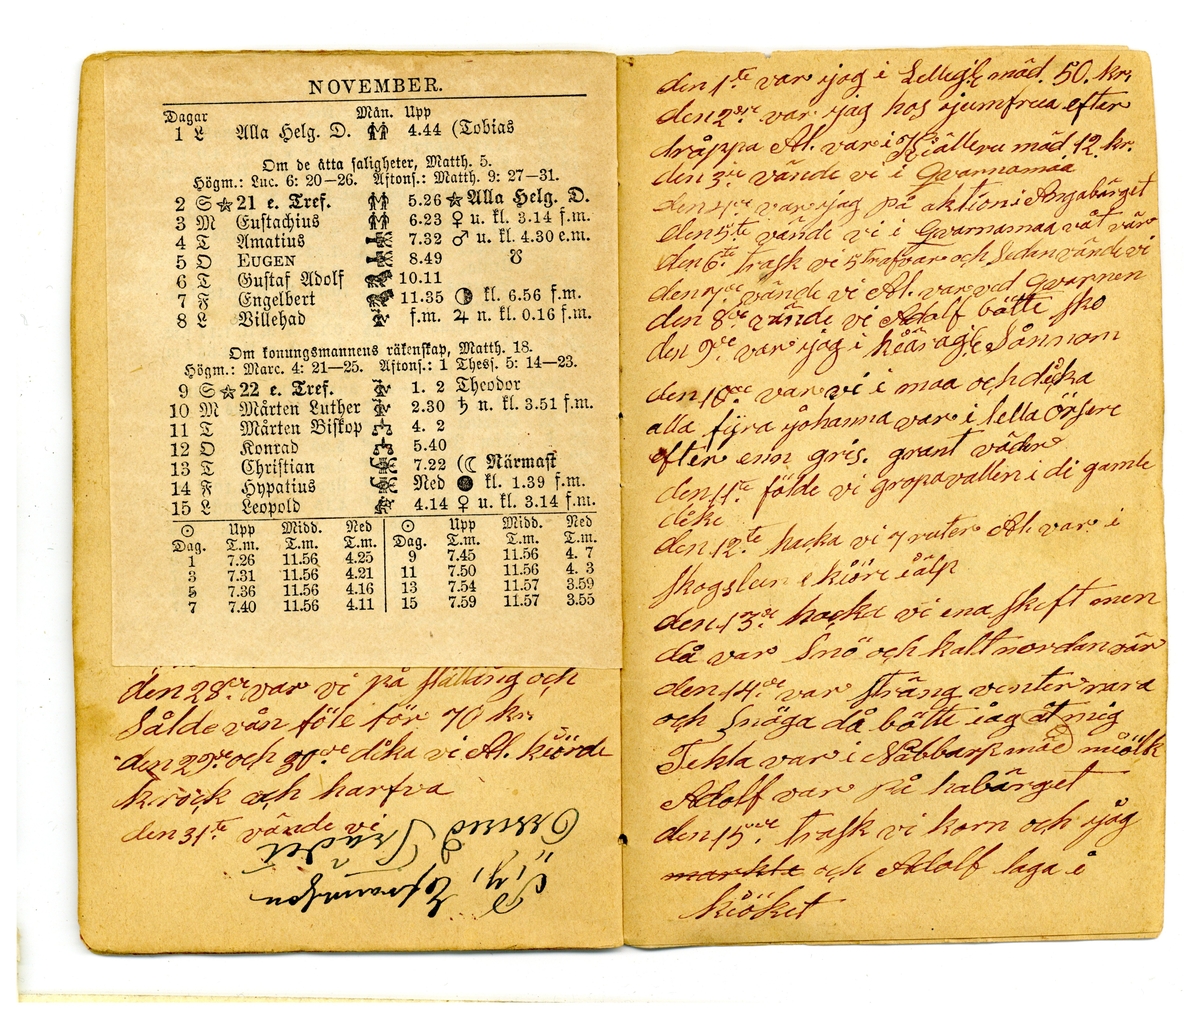 NOVEMBER.
Dagar Mån. Upp
1 L Alla Helg. D. 4.44 (Tobias
Om de åtta saligheter, Matth. 5.
Högm.: Luc. 6: 20—26. Aftons.: Matth. 9: 27—31.
2 S 21 e. Tref. 5.26 Alla Helg. D.
3 M Eustachius 6.23 ♀ u. kl. 3.14 f.m.
4 T Amatius 7.32 ♂ u. kl. 4.30 e.m.
5 O EUGEN 8.49 ☋
6 T Gustaf Adolf 10.11
7 F Engelbert 11.35 kl. 6.56 f.m.
8 L Villehad f.m. ♃ n. kl. 0.16 f.m.
Om konungsmannens räkenskap, Matth. 18.
Högm.: Marc. 4: 21—25. Aftons.: 1 Thess. 5: 14—23.
9 S 22 e. Tref. 1. 2 Theodor
10 M Mårten Luther 2.30 ♄ n. kl. 3.51 f.m.
11 T Mårten Biskop 4. 2
12 O Konrad 5.40
13 T Christian 7.22 (☾ Närmast
14 F Hypatius Ned ● kl. 1.39 f.m.
15 L Leopold 4.14 ♀ u. kl. 3.14 f.m.
☉ Upp Midd. Ned ☉ Upp Midd. Ned
Dag. T.m. T.m. T.m. Dag. T.m. T.m. T.m.
1 7.26 11.56 4.25 9 7.45 11.56 4. 7
3 7.31 11.56 4.21 11 7.50 11.56 4. 3
5 7.36 11.56 4.16 13 7.54 11.57 3.59
7 7.40 11.56 4.11 15 7.59 11.57 3.55
den 28de var vi på ställing och
Sålde vån föle för 70 kr.
den 29de och 30de dika vi Al. kiörde
kröck och harfva
den 31te vände vi
den 1te var ijag i mäd 50. kr.
den 2dre var ijag hos ijumfrua efter
tråppa Al. var i Kiälleru mäd 12. kr.
den 3de vände vi i Qvannamaa
den 4de var ijag på aktion i Angabärget
den 5te vände vi i Qvarnamaa våt vär
den 6te trask vi 5 trafvar och Sedan vände vi
den 7de vände vi Al. var ved Qvarnen
den 8de vände vi Adolf bötte sko
den 9de var ijag i Sånnom
den 10de var vi i maa och dika
alla fijra ijohanna var i lella Örsere
efter enn gris. grant väder
den 11te földe vi gropavallen i di gamle
dike
den 12te hacka vi 7 ruter Al. var i
Skogslun e kiöre i älp
den 13de hacka vi ena skeft men
då var Snö och kalt nordan vär
den 14de var sträng venter vara
och Snöga då bötte iag åt mig
Tekla var i Nabbarp mäe miölk
Adolf var på habärget
den 15de trask vi korn och ijag
markta och Adolf laga i
kiöket